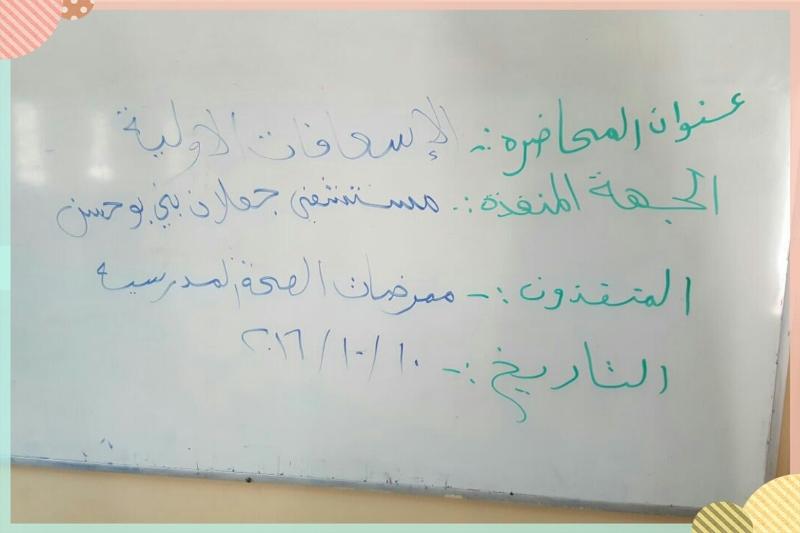 عنوان المحاضره :- الإسعافات الاولية
الجهة المنفذة :- مستشفى جعلان بني بوحسن
المنفذون :- ممرضات الصحة المدرسية
التاريخ :- ٢٠١٦/١٠/١٠